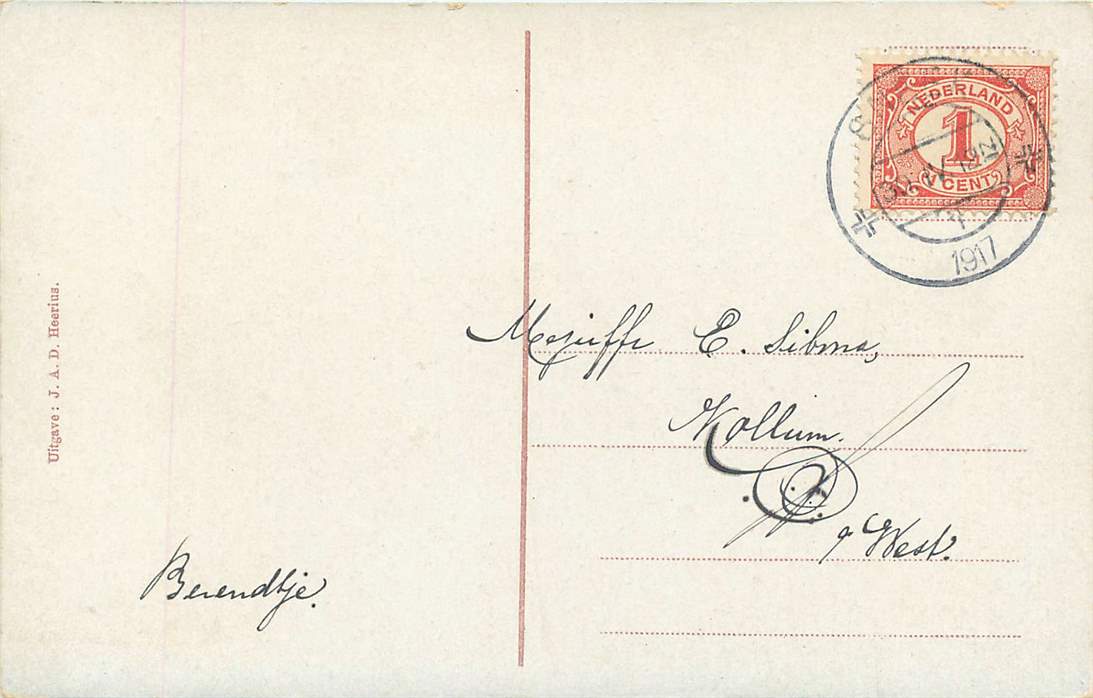 Uitgave: J. A. D. Heerius.
NEDERLAND
1
CENT
1917
Mejuffr E. Sibma,
Kollum.
West.
Berendtje.